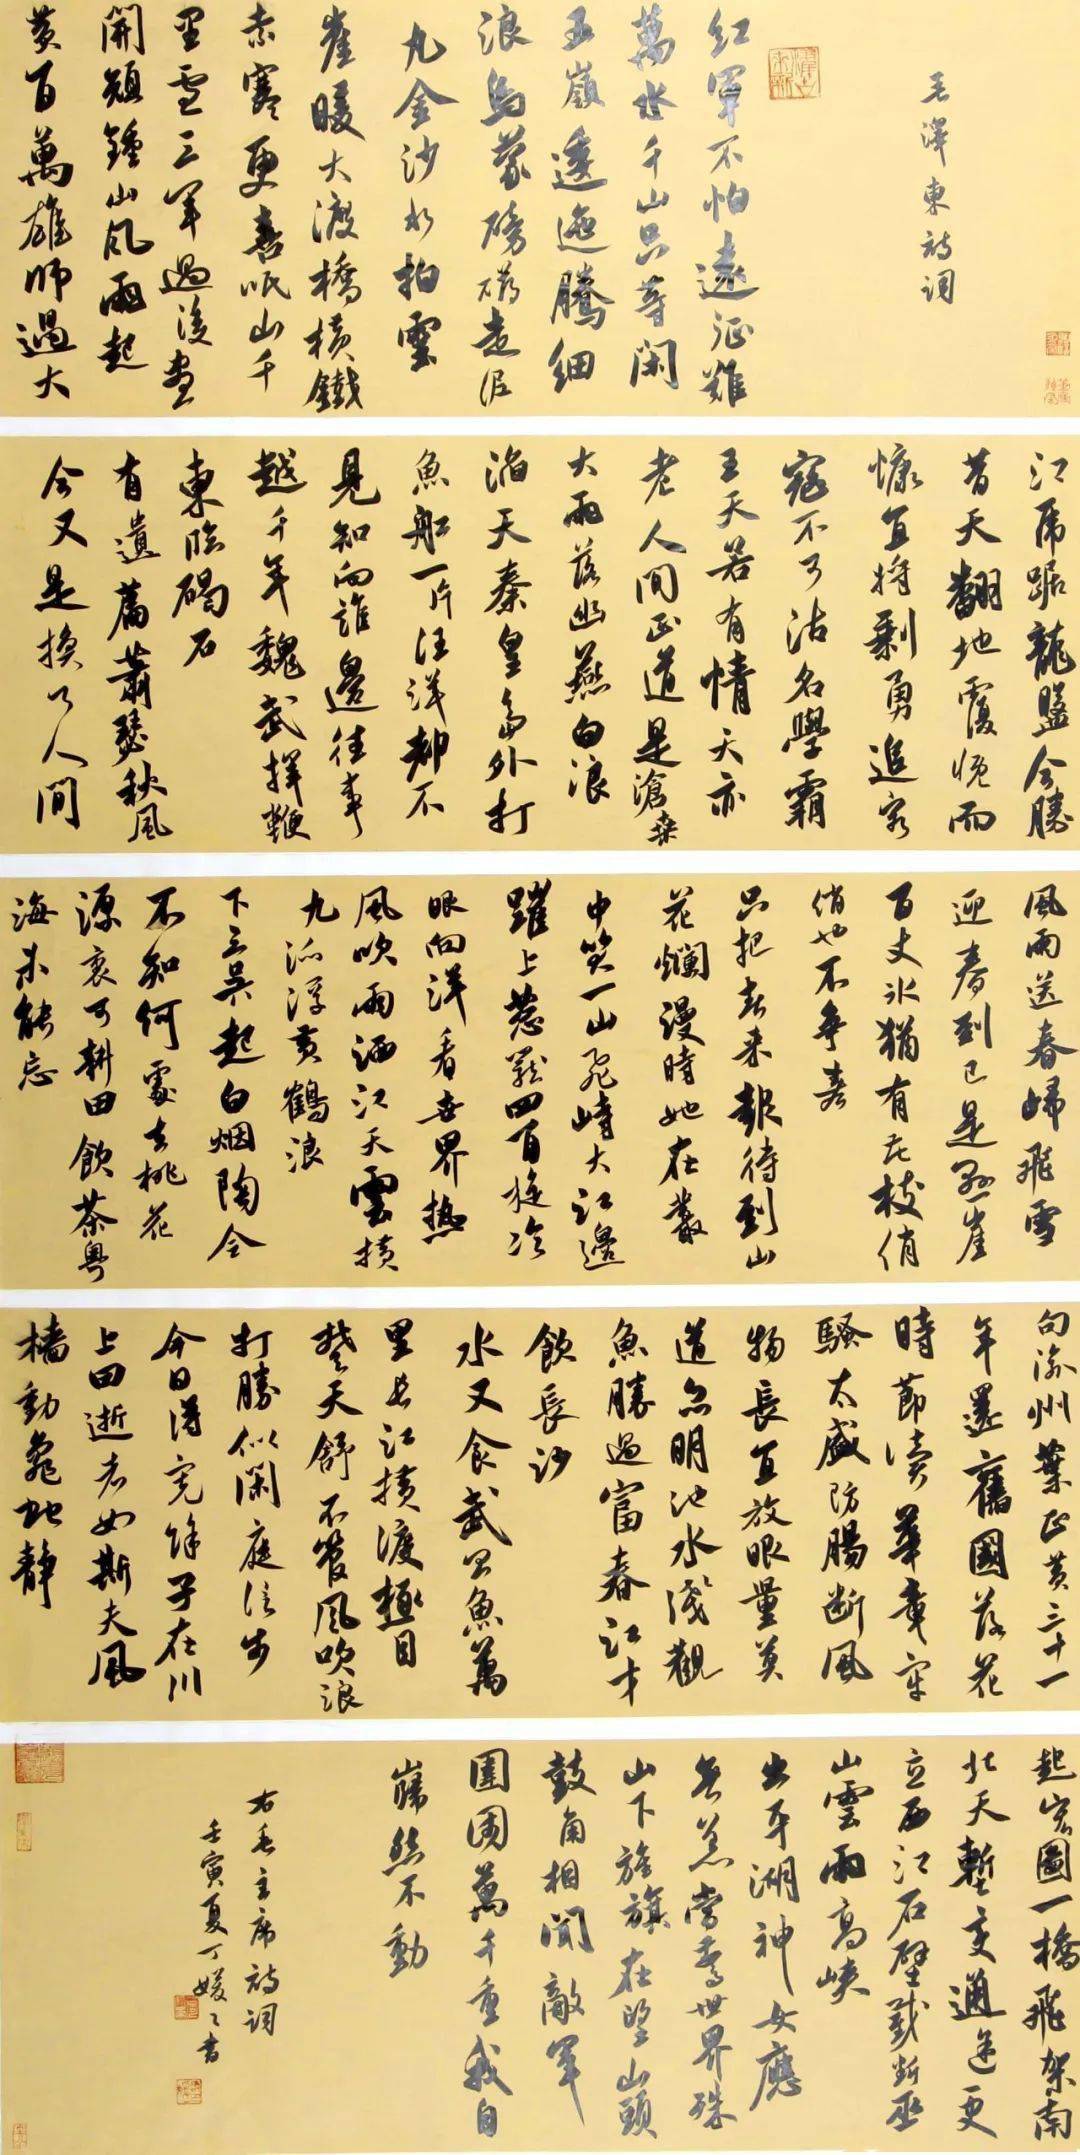 毛澤東詩詞
紅軍不怕遠征難
萬水千山只等閑
五嶺逶迤騰細
浪烏蒙磅礴走泥
丸金沙水拍雲
崖暖大渡橋橫鐵
索寒更喜岷山千
里雪三軍過後盡
開顏鍾山風雨起
黃百萬雄師過大
江虎踞龍盤今勝
昔天翻地覆慨而
慷宜將剩勇追窮
寇不可沽名學霸
王天若有情天亦
老人間正道是滄桑
大雨落幽燕白浪
滔天秦皇島外打
魚船一片汪洋都不
見知向誰邊往事
越千年魏武揮鞭
東臨碣石
有遺篇蕭瑟秋風
今又是換了人間
風雨送春歸飛雪
迎春到已是懸崖
百丈冰猶有花枝俏
俏也不爭春
只把春來報待到山
花爛漫時她在叢
中笑一山飛峙大江邊
躍上蔥蘢四百旋冷
眼向洋看世界熱
風吹雨洒江天雲橫
九派浮黃鶴浪
下三吳起白烟陶令
不知何處去桃花
源裏可耕田飲茶粵
海未能忘
句渝州葉正黃三十一
年還舊國落花
時節讀華章牢
騷太盛防腸斷風
物長宜放眼量莫
道昆明池水淺觀
魚勝過富春江才
飲長沙
水又食武昌魚萬
里長江橫渡極目
楚天舒不管風吹浪
打勝似閑庭信步
今日得寬餘子在川
上曰逝者如斯夫風
檣動龜蛇靜
起宏圖一橋飛架南
北天塹變通途更
立西江石壁截斷巫
山雲雨高峽
出平湖神女應
無恙當驚世界殊
山下旌旗在望山頭
鼓角相聞敵軍
圍困萬千重我自
巋然不動
右毛主席詩詞
壬寅夏丁媛〻書